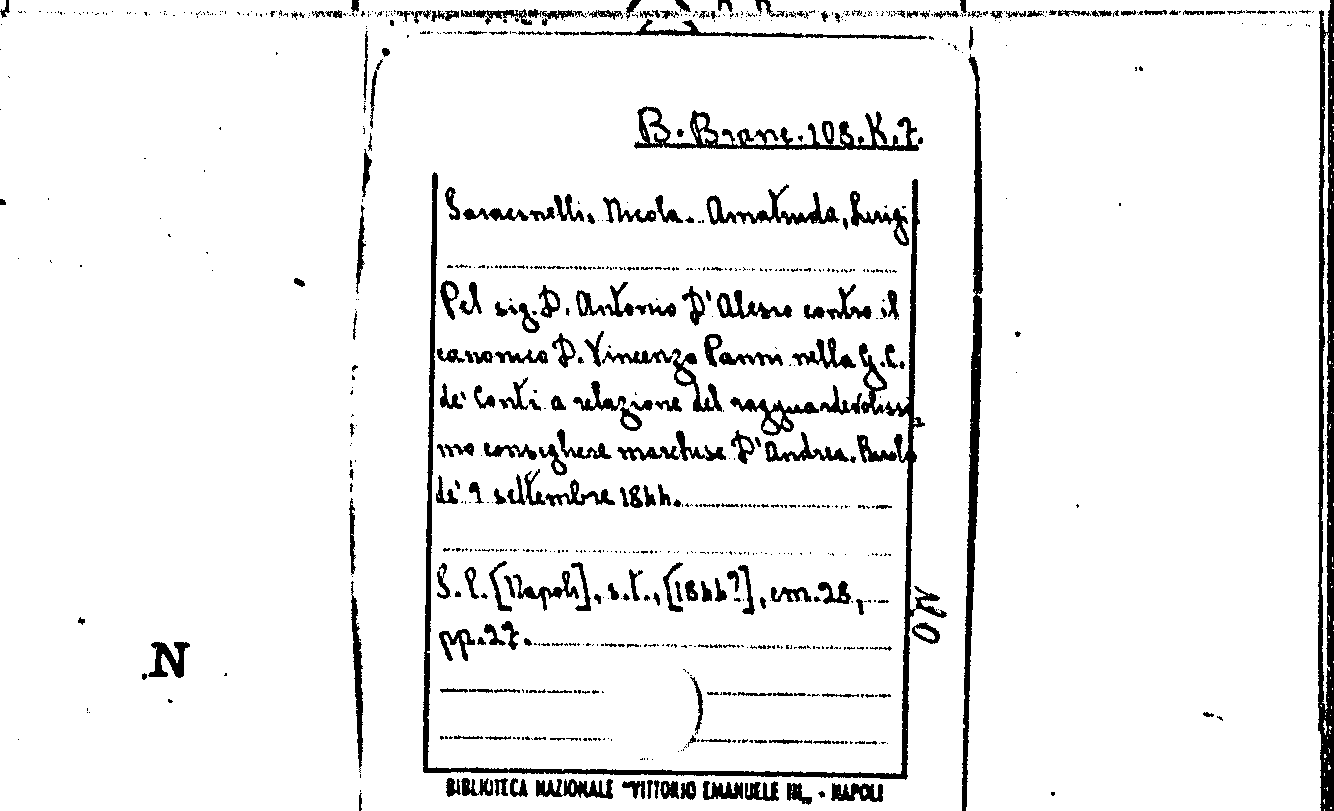 B. Branc. 108. K. 7.
Saracinelli, Nicola. Amatruda, Luigi.
Pel sig. D. Antonio D'Alesio contro il
canonico D. Vincenzo Panni nella G. C.
de' Conti a relazione del ragguardevolissi
mo consigliere marchese D'Andrea. Ruolo
de' 9 settembre 1844.
S. l. [Napoli], s. t., [1844?], cm. 28,
pp. 27.
N
BIBLIOTECA NAZIONALE "VITTORIO EMANUELE III„ - NAPOLI